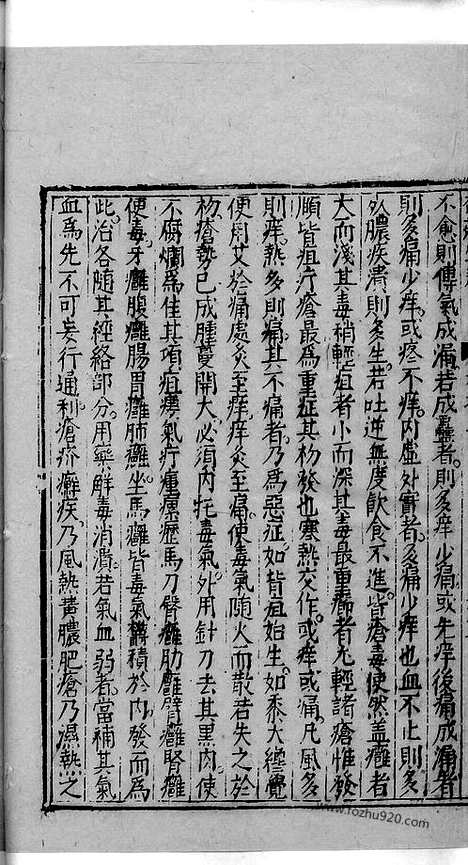 不愈則傳氣成漏若成蠱者則多痒少痛或先痒後痛成漏者
則多痛少痒或疼不痒内虛外實者多痛少痒也血不止則多
外膿疾潰則多生若吐逆無度飲食不進皆瘡毒使然盖癰者
大而淺其毒稍輕疽者小而深其毒最重癤者尤輕諸瘡惟發
頤皆疽疔瘡最爲重症其初發也寒熱交作或痒或痛凡風多
則痒熱多則痛其不痛者乃爲惡症如背疽始生如黍大纔覺
便用艾於痛處灸至痒痒灸至痛使毒氣隨火而散若失之於
初瘡勢已成腫蔓開大必須内托毒氣外用針刀去其黒肉使
不腐爛爲佳其項疽癭氣疔腫瘰癧馬刀臀癰肋癰臂癰腎癰
便毒牙癰腹癰腸胃癰肺癰坐馬癰皆毒氣積於内發而爲
此治各隨其經絡部分用藥解毒消潰若氣血弱者當補其氣
血爲先不可妄行通利瘡疥癬疾乃風熱黄膿肥瘡乃濕熱之
www.fozhu920.com